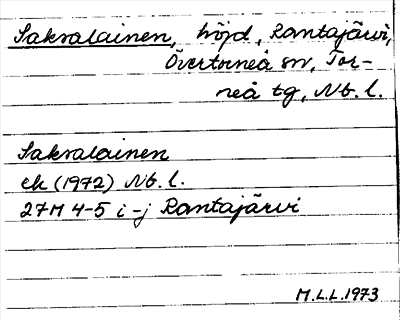 Saksalainen, höjd, Rantajärvi,
Övertorneå sn, Tor-
neå tg, Nb. l.
Saksalainen
ek (1972) Nb. l.
27M 4-5 i-j Rantajärvi
M.L.L. 1973